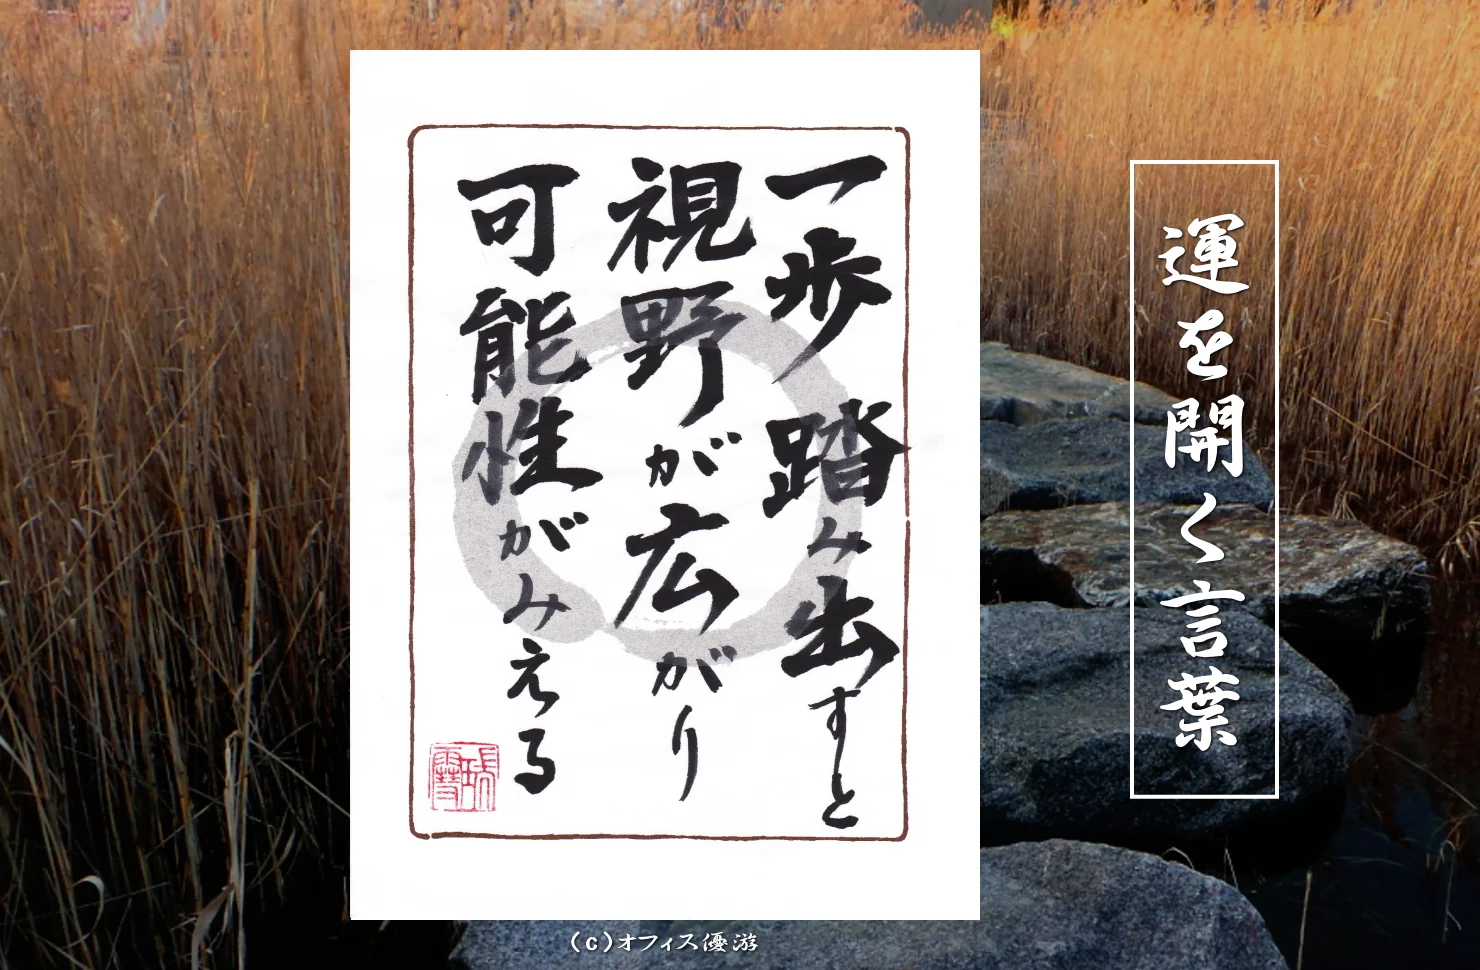 運を開く言葉
一歩踏み出すと
視野が広がり
可能性がみえる
(c)オフィス優游